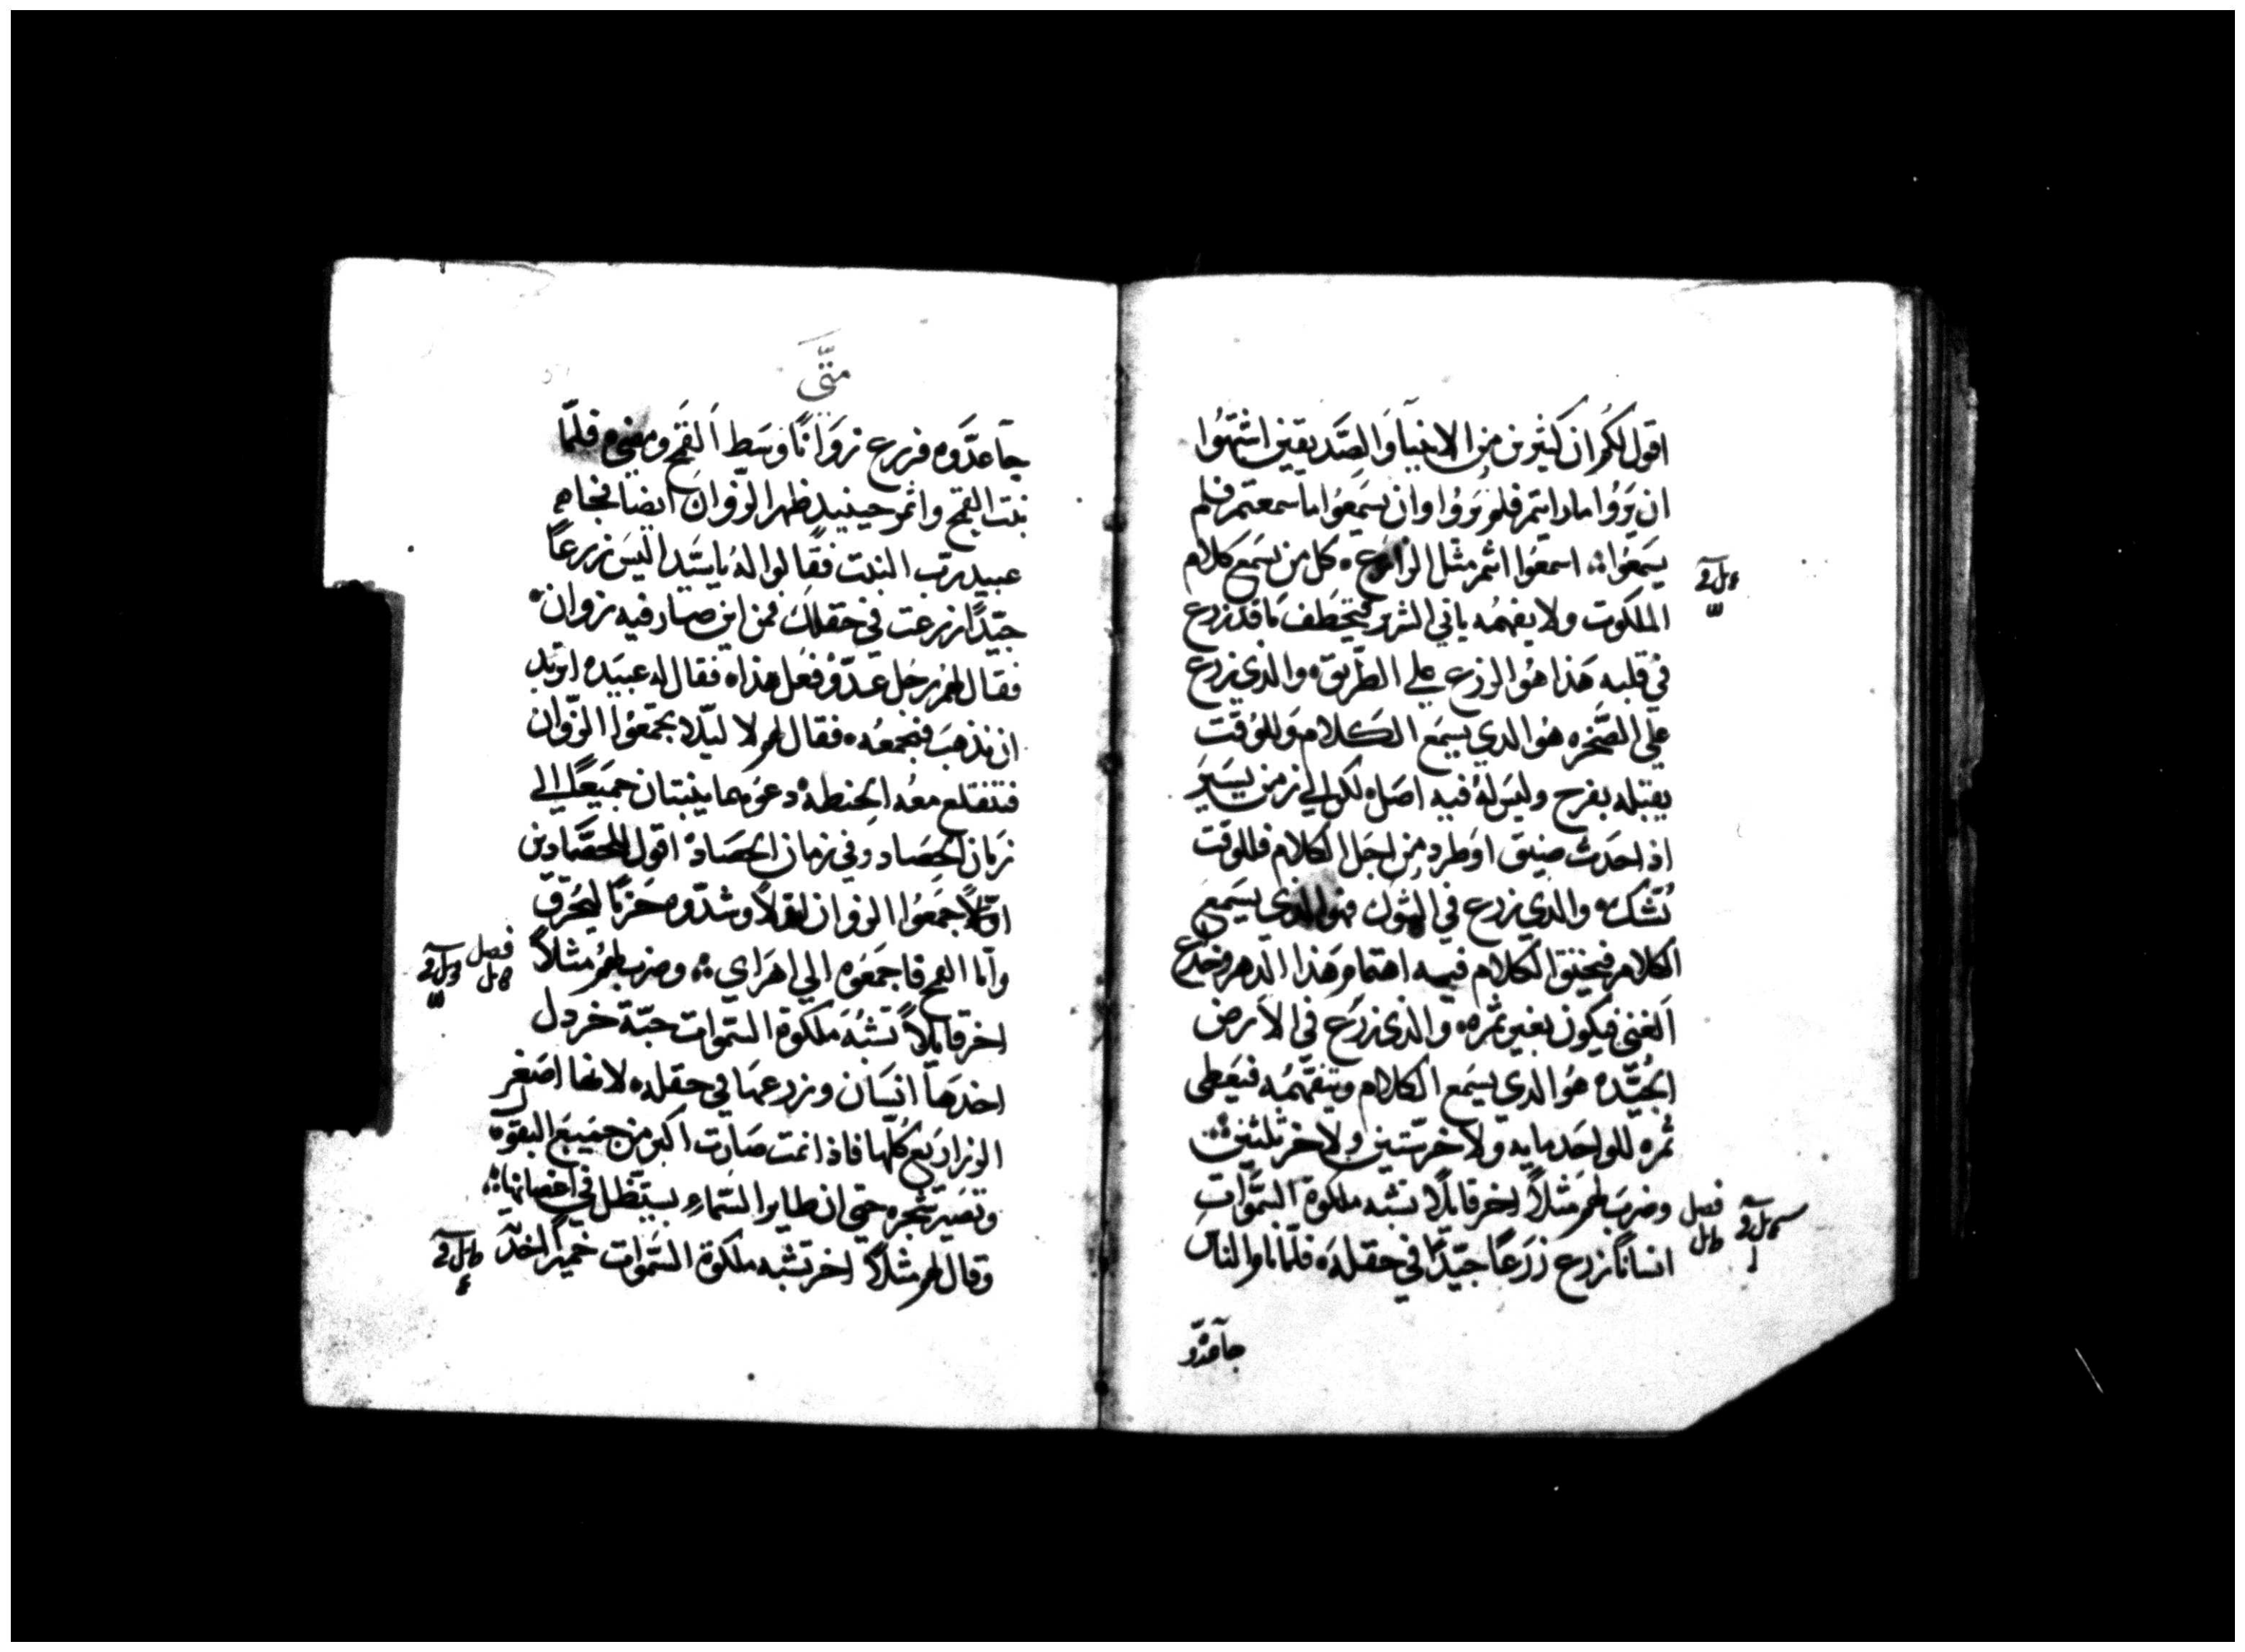 اقول لكم ان كثيرين من الانبيآ والصديقين اشتهوا
ان يروا ما رايتم فلم يروا وان يسمعوا ما سمعتم فلم
يسمعوا ⁘ اسمعوا انتم مثل الزارع ٠ كل من يسمع كلام
الملكوت ولا يفهمه ياتي الشرير فيخطف ما قد زرع
في قلبه هذا هو الزرع علي الطريق ٠ والذي زرع
علي الصخره هو الدي يسمع الكلام وللوقت
يقبله بفرح وليس له فيه اصل ٠ لكن الي زمن يسير
اذا حدث ضيق او طرد من اجل الكلام فللوقت
تشك ٠ والذي زرع في الشوك فهو الذي يسمع
الكلام فيختنق الكلام فيه اهتمام هذا الدهر وخدع
الغنى فيكون بغير ثمره ٠ والذي زرع في الارض
الجيده هو الدي يسمع الكلام ويتفهمه فيعطي
ثمره للواحد مايه ولاخر ستين ولاخر ثلثين ⁘
وضرب لهم مثلاً اخر قايلاً تشبه ملكوة السموات
فصل
انساناً زرع زرعاً جيداً في حقله ٠ فلما نام الناس
جآ عدو
متى
جآ عدوه فزرع زواناً وسط القمح ومضي ٠ فلما
نبت القمح واثمر حينيد ظهر الزوان ايضا فجاه
عبيد رب البيت فقالوا له يا سيد اليس زرعاً
جيداً زرعت في حقلك فمن اين صار فيه زوان ٠
فقال لهم رجل عدو فعل هذا ٠ فقال له عبيده اتريد
ان نذهب فنجمعه ٠ فقال لهم لا ليلا تجمعوا الزوان
فتقتلع معه الحنطة دعوهما ينبتان جميعاً الي
زمان الحصاد وفي زمان الحصاد اقول للحصادين
اجمعوا الزوان اولاً وشدوه حزما ليحرق
واما القمح فاجمعوه الي اهراي ⁘ وضرب لهم مثلاً
فصل
اخر قايلاً تشبه ملكوة السموات حبة خردل
اخدها انسان وزرعها في حقله ٠ لانها اصغر
الزراريع كلها فاذا نمت صارت اكبر من جميع البقول
وتصير شجره حتي ان طاير السماء يستظل في اغصانها ⁘
وقال لهم مثلاً اخر تشبه ملكوة السموات خميراً اخدته